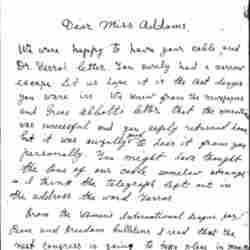 Dear Miss Addams,
We were happy to have your cable and
Dr. letter. You surely had a narrow
escape. Let us hope it is the last danger
you were in. We knew from the newspapers
and Grace Abbott's letter that the operation
was successful and you safely returned home
but it was awfully to hear it from you
personally. You might have thought
the tone of our cable somewhat strange
as I think the telegraph dept. put in
the address the word
From the Women's International League for
Peace and Freedom bulletins I read that the
next congress is going to take place in